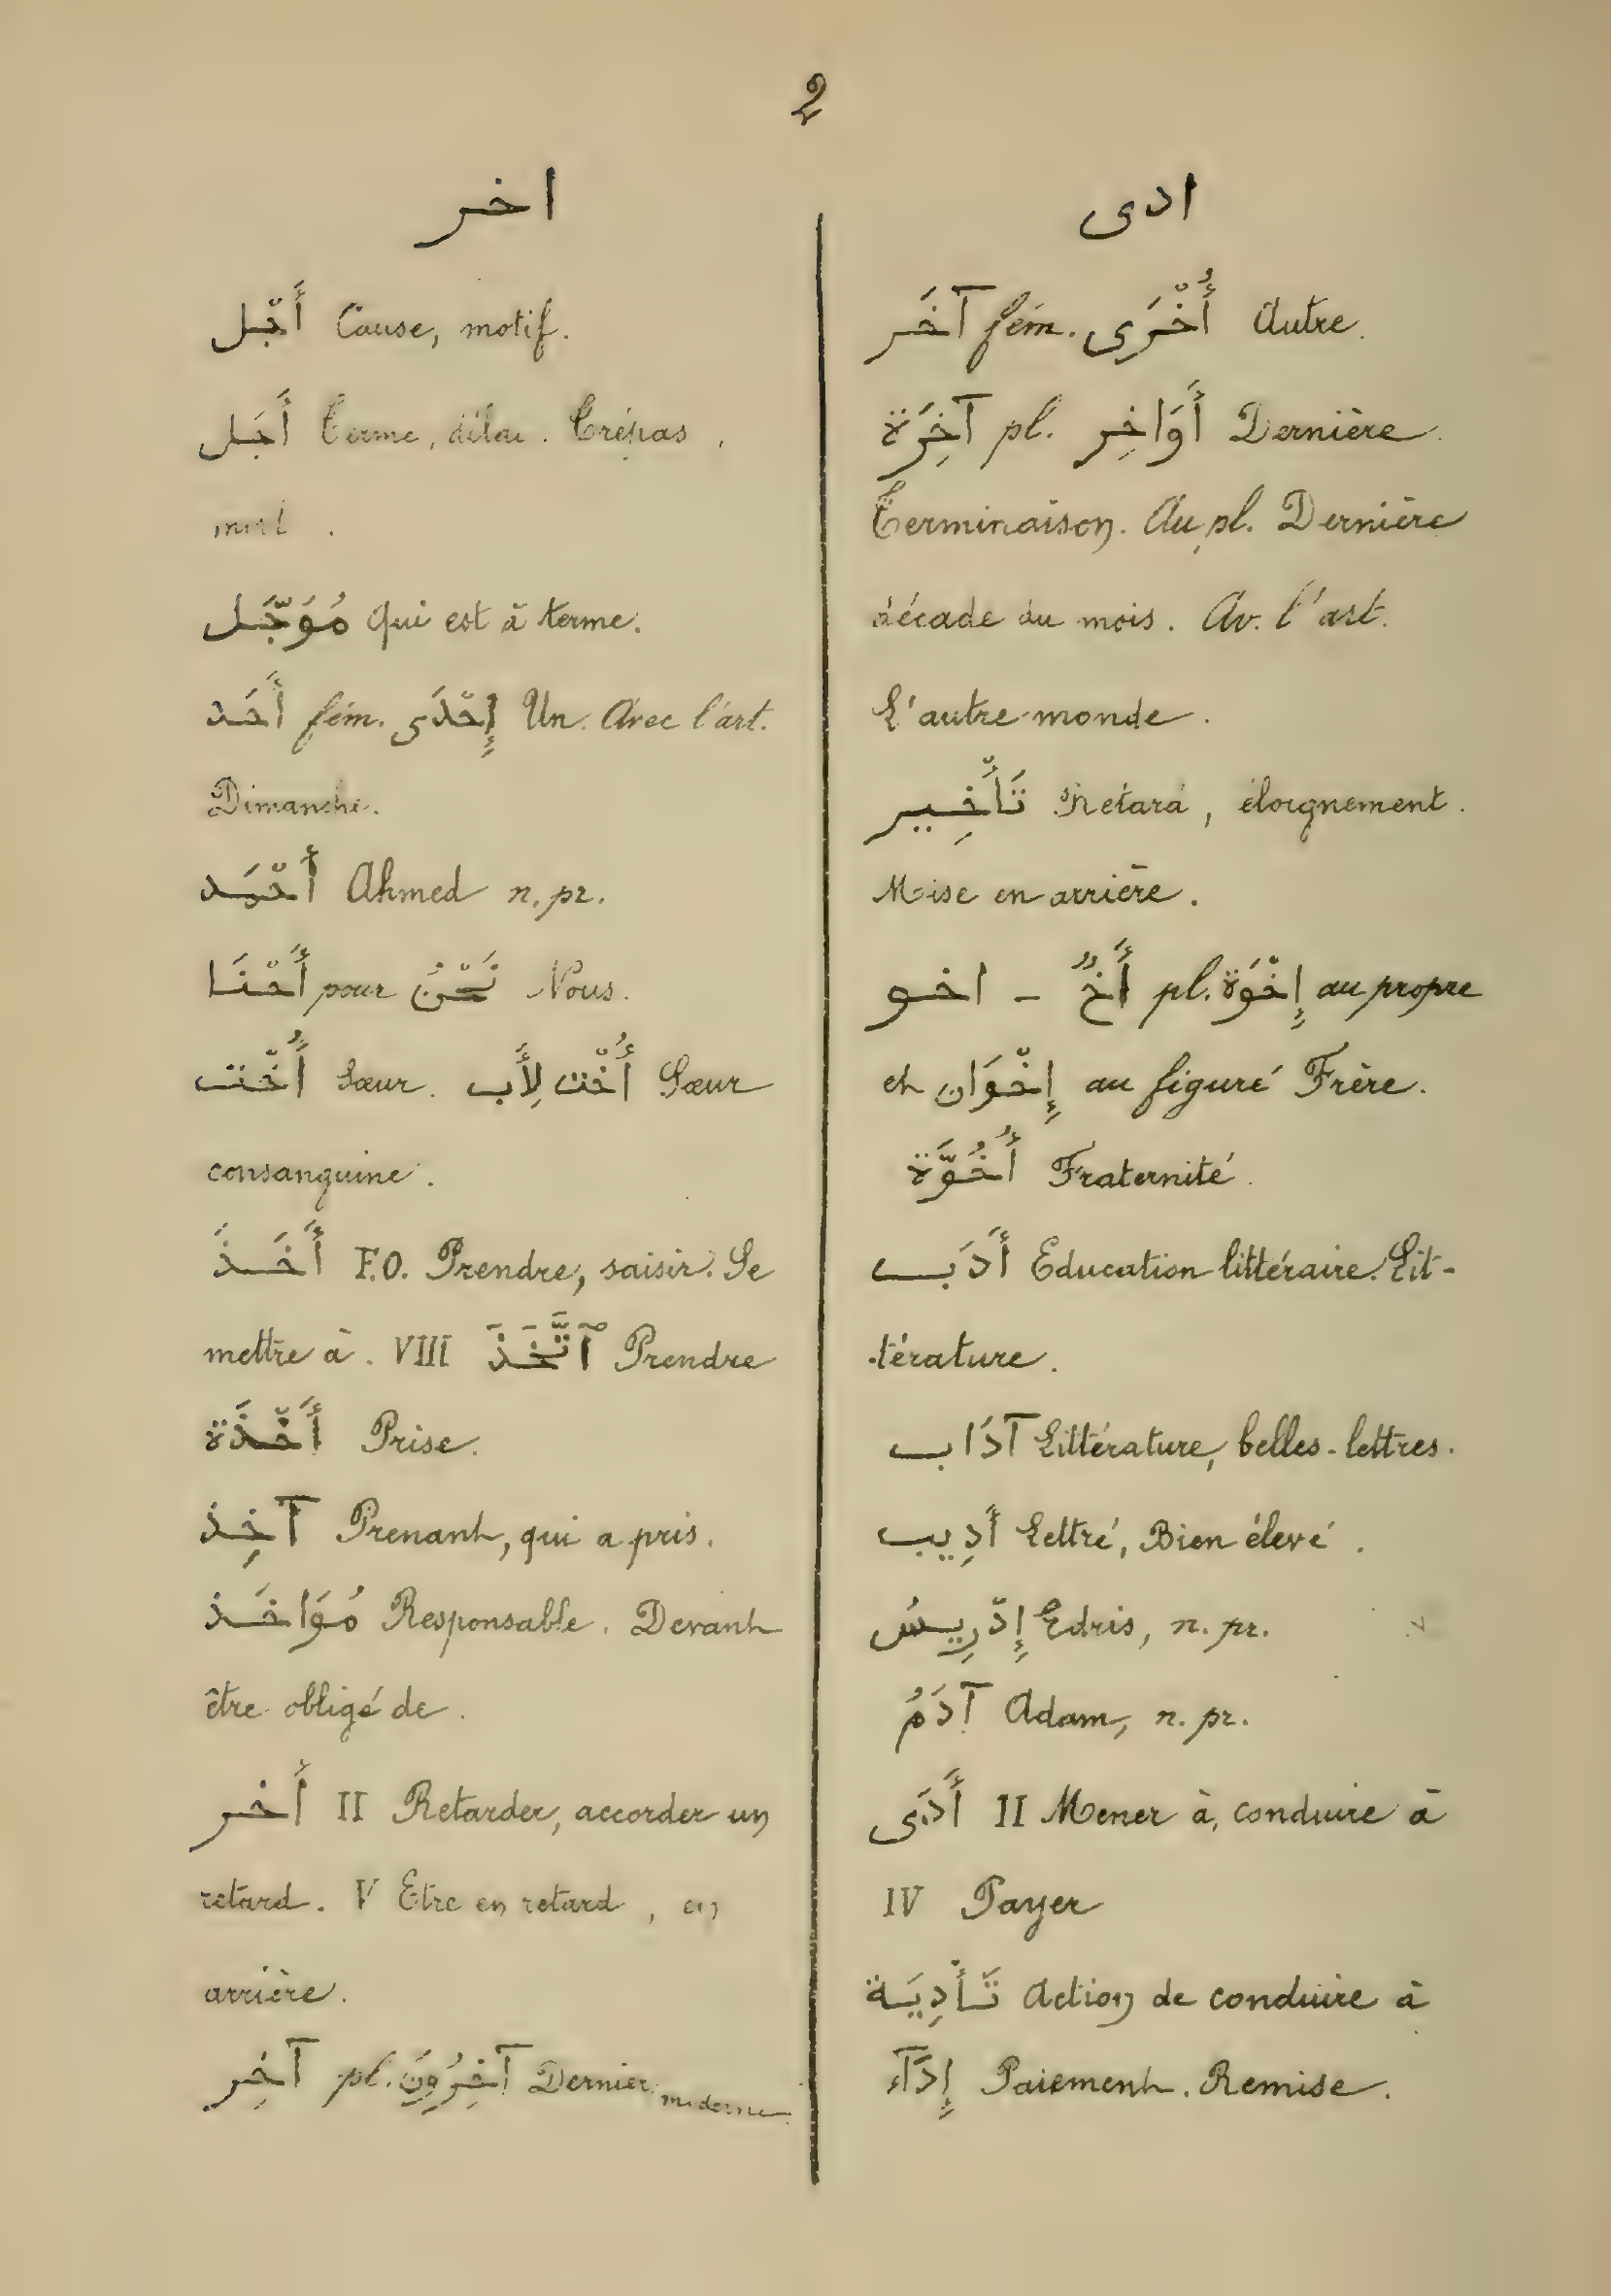 2
اخر
أَجْل Cause, motif.
أَجَل Terme, délai. Trépas,
mort.
مُوَجَّل Qui est à terme.
أَحَد fém. إِحْدَى Un. Avec l'art.
Dimanche.
أَحْمَد Ahmed n. pr.
أَحْنَا pour نَحْنُ Nous.
أُخْت Sœur. أُخْت لِأَب Sœur
consanguine.
أَخَذَ F.O. Prendre, saisir. Se
mettre à. VIII ٱتَّخَذَ Prendre
أَخْذَة Prise.
آخِذ Prenant, qui a pris.
مُوَاخَذ Responsable. Devant
être obligé de.
أَخر II Retarder, accorder un
retard. V Etre en retard, en
arrière.
آخِر pl. آخِرُونَ Dernier, moderne.
ادى
آخَر fém. أُخْرَى Autre.
آخِرَة pl. أَوَاخِر Dernière.
Terminaison. Au pl. Dernière
décade du mois. Av. l'art.
L'autre monde.
تَأْخِير Retard, éloignement.
Mise en arrière.
اخو - أَخٌ pl. إِخْوَة au propre
et إِخْوَان au figuré Frère.
أُخُوَّة Fraternité.
أَدَب Education littéraire. Lit-
térature.
آدَاب Littérature, belles-lettres.
أَدِيب Lettré, Bien élevé.
إِدْرِيسُ Edris, n. pr.
آدَمُ Adam, n. pr.
أَدَى II Mener à, conduire à
IV Payer
تَأْدِيَة Action de conduire à
إِدَآء Paiement. Remise.